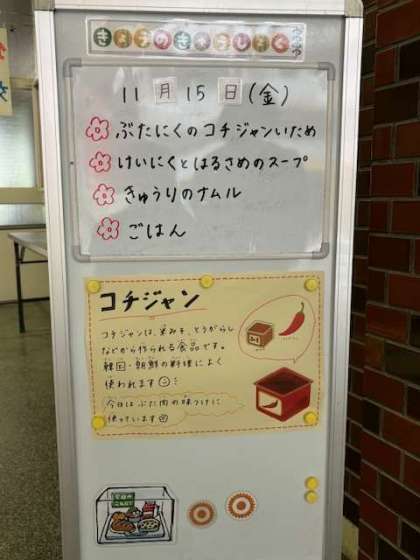 きょうのきゅうしょく
11月15日(金)
ぶたにくのコチジャンいため
けいにくとはるさめのスープ
きゅうりのナムル
ごはん
コチジャン
コチジャンは、米みそ、とうがらし
などから作られる食品です。
韓国・朝鮮の料理によく
使われます
今日はぶた肉の味つけに
使っています